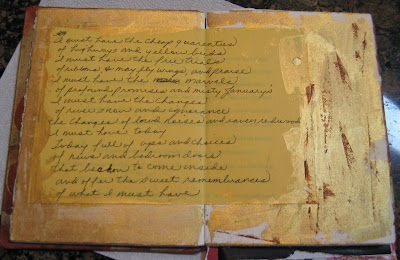 I must have the cheap guarantees
of highways and yellow birds
I must have the free trials
of ribbons & mayfly wings and praise
I must have the marvels
of profound promises and misty January's
I must have the changes
of river new and
the changes of loud noises and
I must have today
Today full of ups and choices
of news and bedroom doors
that beckon to come inside
and offer the sweet remembrances
of what I must have